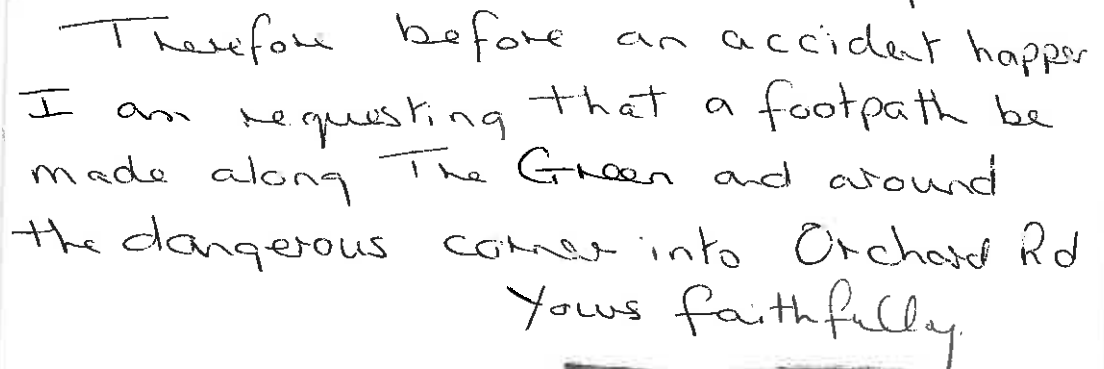 Therefore before an accident happens
I am requesting that a footpath be
made along The Green and around
the dangerous corner into Orchard Rd
Yours faithfully.